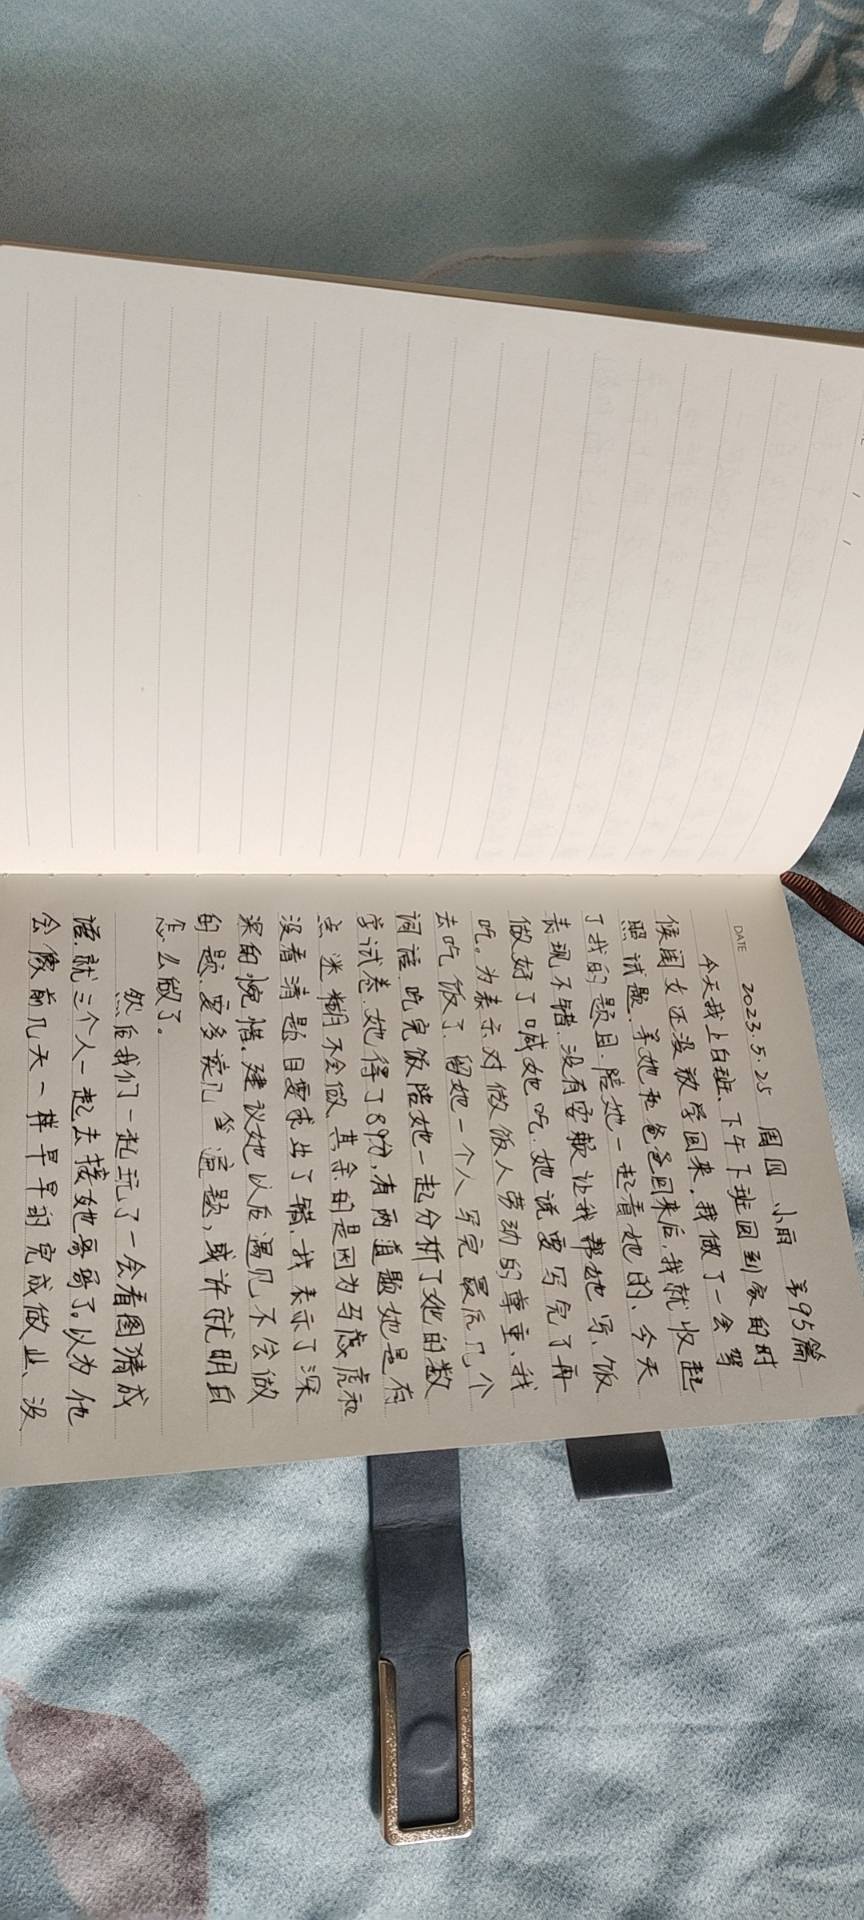 DATE 2023.5.25 周四 小丽 第95篇
今天我上白班、下午下班回到家的时
候闺女还没放学回来，我做了一会驾
照试题、等她和爸爸回来后，我就收起
了我的题目、陪她一起看她的、今天
表现不错、没有耍赖让我帮她写、饭
做好了喊她吃、她说要写完了再
吃。为表示对做饭人劳动的尊重、我
去吃饭了、留她一个人写完最后几个
词语、吃完饭陪她一起分析了她的数
学试卷、她得了89分，有两道题她是有
点迷糊不会做、其余的是因为马虎和
没看清题目要求出了错、我表示了深
深的惋惜、建议她以后遇见不会做
的题、要多读几
题，或许就明白
怎么做了。
然后我们一起玩了一会看图猜成
语、就三个人一起去接她哥哥了。以为他
会像前几天一样早早的完成做业、没